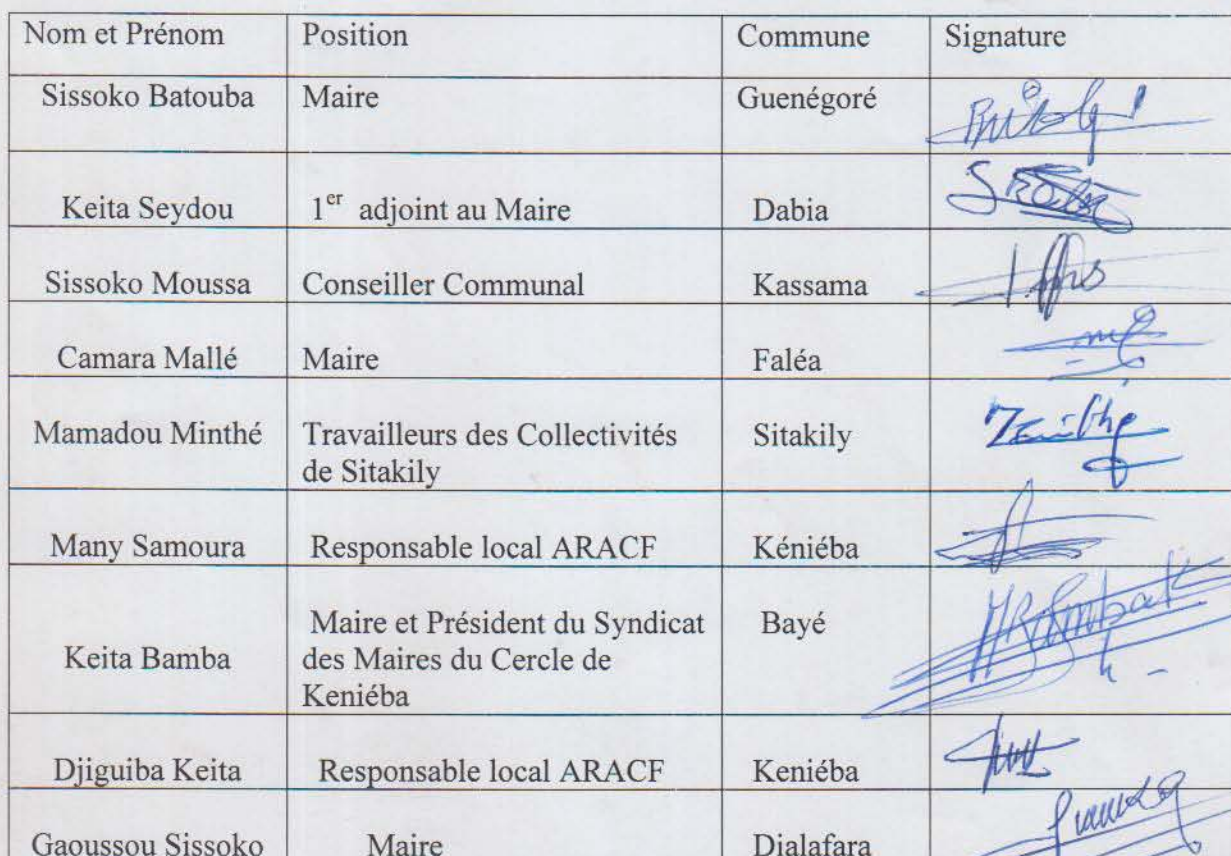 Nom et Prénom Position Commune Signature
Sissoko Batouba Maire Guenégoré
Keita Seydou 1er adjoint au Maire Dabia
Sissoko Moussa Conseiller Communal Kassama
Camara Mallé Maire Faléa
Mamadou Minthé Travailleurs des Collectivités Sitakily
de Sitakily
Many Samoura Responsable local ARACF Kéniéba
Maire et Président du Syndicat Bayé
Keita Bamba des Maires du Cercle de
Keniéba
Djiguiba Keita Responsable local ARACF Keniéba
Gaoussou Sissoko Maire Dialafara